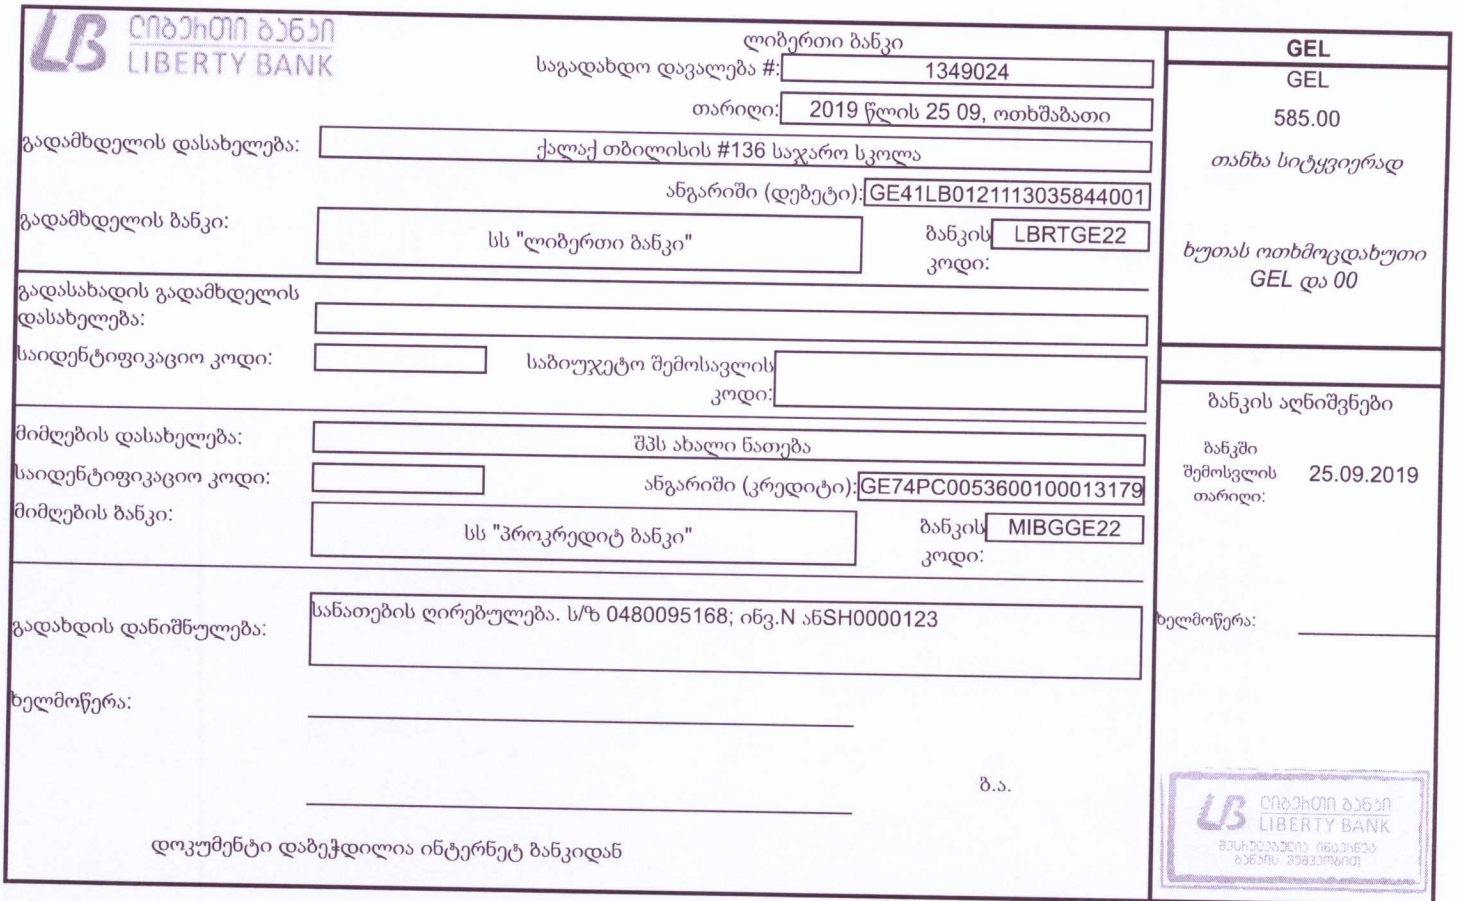 ᲚᲘᲑᲔᲠᲗᲘ ᲑᲐᲜᲙᲘ
LIBERTY BANK
ლიბერთი ბანკი
საგადახდო დავალება #: 1349024
თარიღი: 2019 წლის 25 09, ოთხშაბათი
გადამხდელის დასახელება: ქალაქ თბილისის #136 საჯარო სკოლა
ანგარიში (დებეტი): GE41LB0121113035844001
გადამხდელის ბანკი: სს "ლიბერთი ბანკი" ბანკის კოდი: LBRTGE22
გადასახადის გადამხდელის
დასახელება:
საიდენტიფიკაციო კოდი: საბიუჯეტო შემოსავლის
კოდი:
მიმღების დასახელება: შპს ახალი ნათება
საიდენტიფიკაციო კოდი: ანგარიში (კრედიტი): GE74PC0053600100013179
მიმღების ბანკი: სს "პროკრედიტ ბანკი" ბანკის კოდი: MIBGGE22
გადახდის დანიშნულება: სანათების ღირებულება. ს/ზ 0480095168; ინვ.N ანSH0000123
ხელმოწერა:
ბ.ა.
დოკუმენტი დაბეჭდილია ინტერნეტ ბანკიდან
GEL
GEL
585.00
თანხა სიტყვიერად
ხუთას ოთხმოცდახუთი
GEL და 00
ბანკის აღნიშვნები
ბანკში
შემოსვლის 25.09.2019
თარიღი:
ხელმოწერა:
ᲚᲘᲑᲔᲠᲗᲘ ᲑᲐᲜᲙᲘ
LIBERTY BANK
ᲨᲔᲡᲠᲣᲚᲔᲑᲣᲚᲘᲐ ᲘᲜᲢᲔᲠᲜᲔᲢ
ᲑᲐᲜᲙᲘᲡ ᲛᲔᲨᲕᲔᲝᲑᲘᲗ